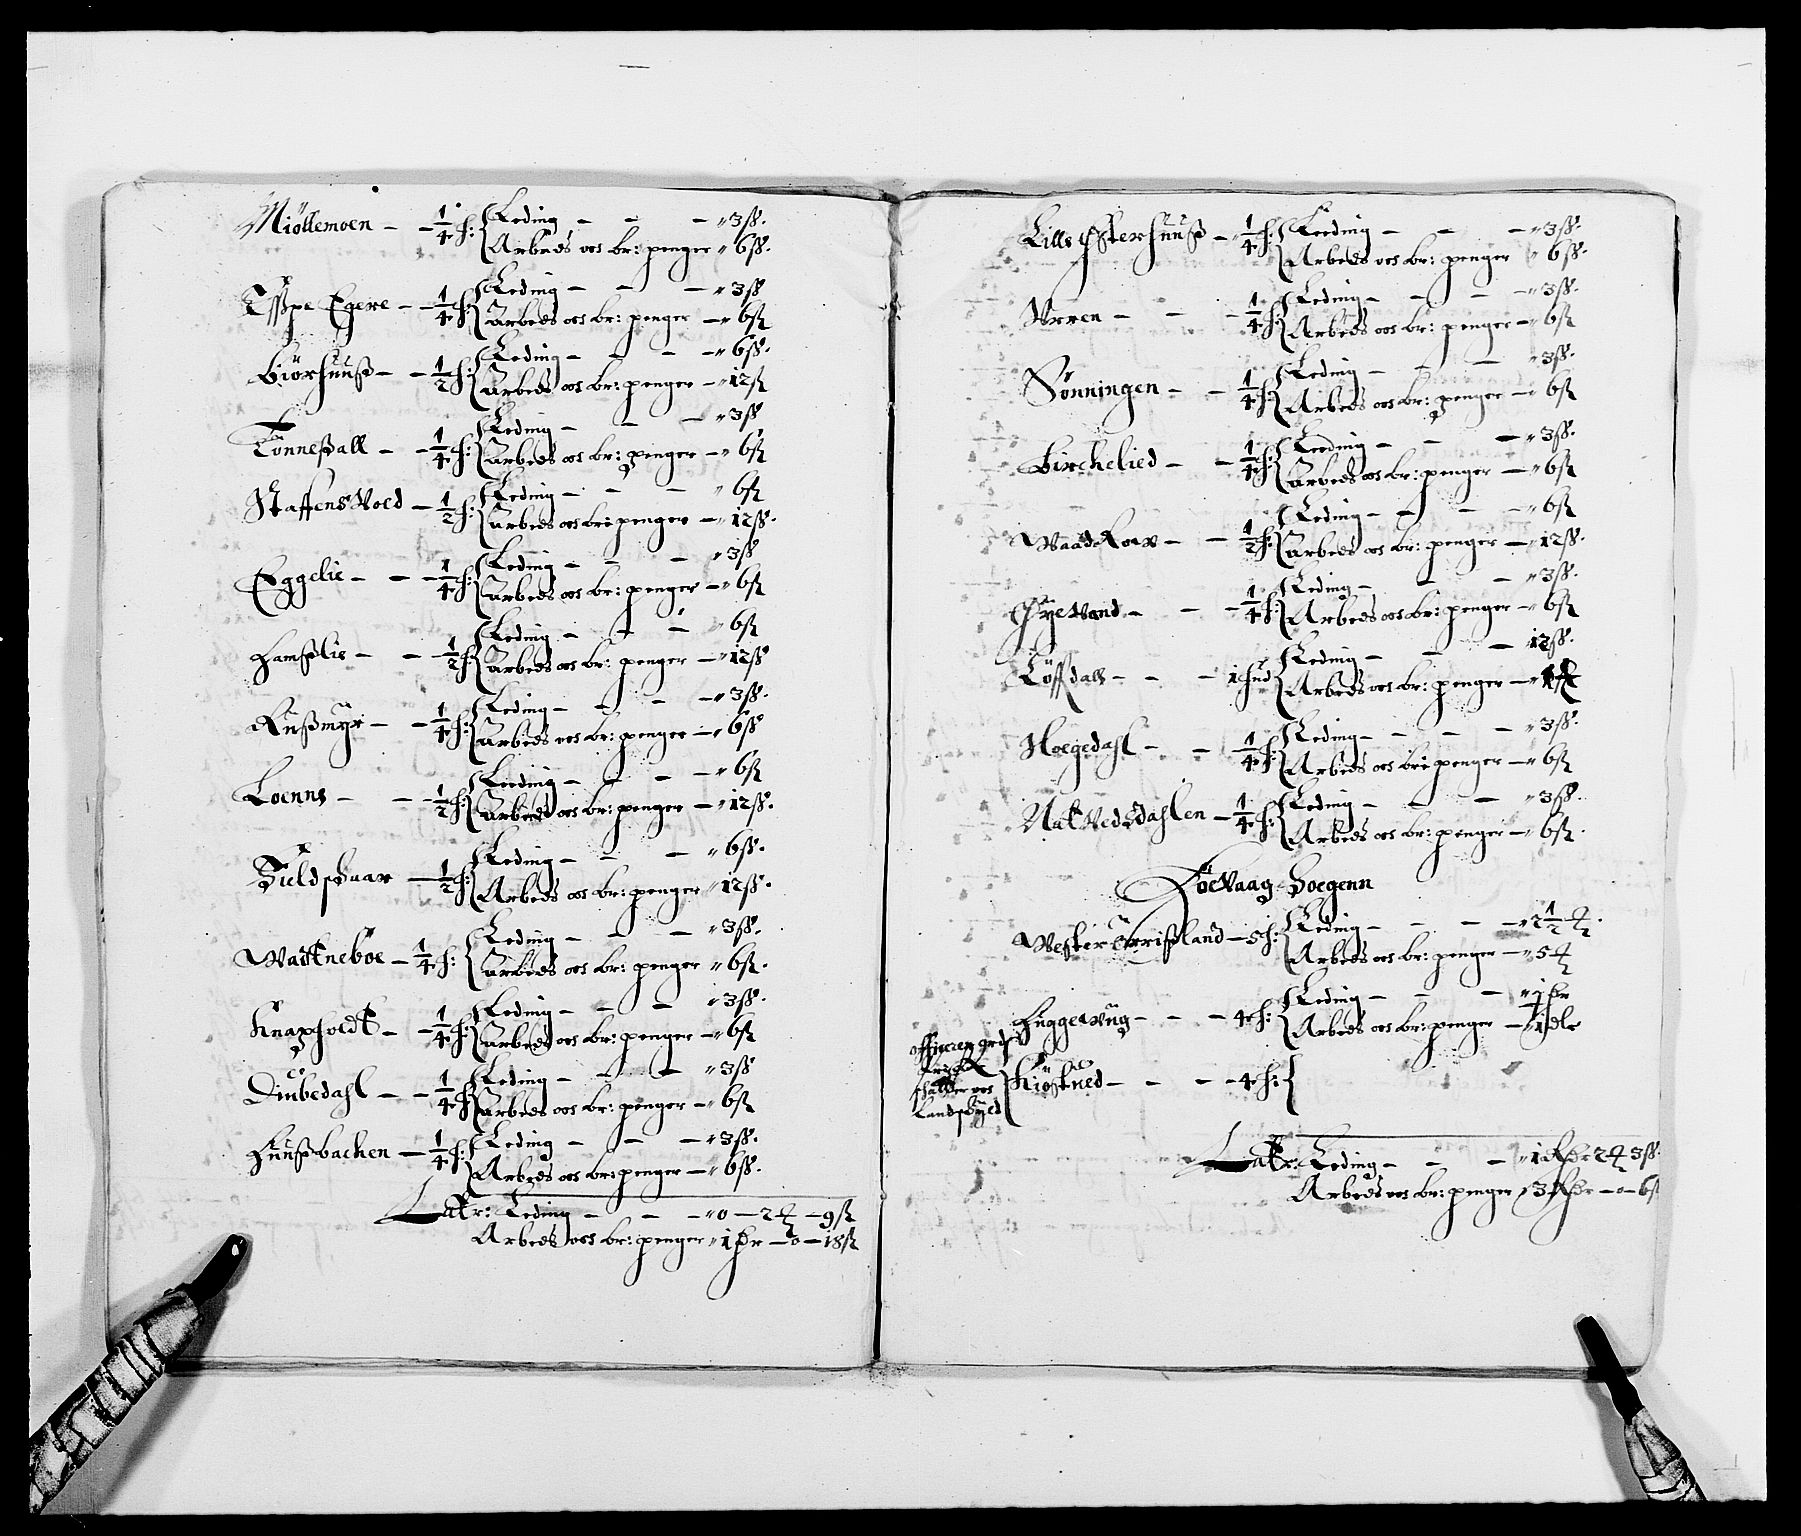 Miöllemoen - - 1/4 h: { Leding - - - " 3 ß.
Arbeds oos br: penger " 6 ß.
Egere - - 1/4 h: { Leding - - - " 3 ß.
Arbeds oos br: penger - " 6 ß
Giörhuuß - - 1/2 h: { Leding - - - " 6 ß.
Arbeds oos br: penger - " 12 ß
Tönneßall - - 1/4 h: { Leding - - - " 3 ß
Arbeds oos br: penger - " 6 ß
StaffensVoed - 1/2 h: { Leding - - - " 6 ß
Arbeds oos br: penger - " 12 ß.
Eggelie - - - 1/4 h: { Leding - - - " 3 ß
Arbeds oos br: penger - " 6 ß
Hamßlie - - - 1/2 h: { Leding - - - " 6 ß
Arbeds oos br: penger - " 12 ß
Rußmyr - - 1/4 h: { Leding - - - " 3 ß.
Arbeds oos br: penger - " 6 ß
Loenns - - - 1/2 h: { Leding - - - " 6 ß
Arbeds oos br: penger - " 12 ß.
- 1/2 h: { Leding - - - " 6 ß.
Arbeds oos br: penger " 12 ß.
Watneböe - 1/4 h: { Leding - - - " 3 ß.
Arbeds oos br: penger " 6 ß.
- - 1/4 h: { Leding - - - " 3 ß.
Arbeds oos br: penger - " 6 ß
Diubedahl - - 1/4 h: { Leding - - - " 3 ß
Arbeds oos br: penger - " 6 ß
Huußbachen - 1/4 h: { Leding - - - " 3 ß.
Arbeds oos br: penger - " 6 ß.
Latr: Leding - - - " 0 - 2 - 9 ß
Arbeds oos br: penger " 1 - 0 - 18 ß
Lille Østerhuuß - 1/4 h: { Leding - - - " 3 ß.
Arbeds oos br: penger " 6 ß.
Wrren - - - 1/4 h: { Leding - - - " 3 ß.
Arbeds oos br: penger - " 6 ß
Sönningen - - 1/4 h: { Leding - - - " 3 ß.
Arbeds oos br: penger - " 6 ß
Birchelied - - 1/4 h: { Leding - - - " 3 ß.
Arbeds oos br: penger - " 6 ß
- - 1/2 h: { Leding - - - " 6 ß
Arbeds oos br: penger - " 12 ß.
ØyeVand - - - 1/4 h: { Leding - - - " 3 ß.
Arbeds oos br: penger - " 6 ß
Löffdall - - - 1 hud { Leding - - - 12 ß.
Arbeds oos br: penger - " 1
Hoegedahl - - 1/4 h: { Leding - - - " 3 ß.
Arbeds oos br: penger - " 6 ß
NatVedsdahlen - 1/4 h: { Leding - - - " 3 ß.
Arbeds oos br: penger - " 6 ß.
Sogenn
Wester Örrißland - 5 h: { Leding - - - " 2 1/2
Arbeds oos br: penger - " 5
- - - 4 h: { Leding - - - " 1
Arbeds oos br: penger - " 1 dlr
- - - 4 h: {
Landskyld
Latr: Leding - - - " 1 2 3 ß.
Arbeds oos br: penger " 3 - 0 - 6 ß